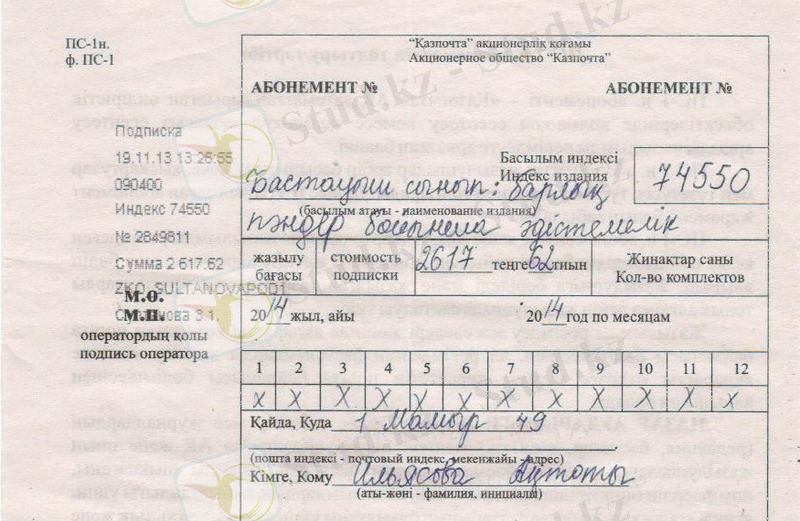 ПС-1н.
ф. ПС-1
"Қазпочта" акционерлік қоғамы
Акционерное общество "Казпочта"
АБОНЕМЕНТ № АБОНЕМЕНТ №
Подписка
19.11.13 13:26:55
090400
Индекс 74550
№ 2849811
Сумма 2 617.62
ZKO_SULTANOVAPOD1
З.1.
М.О.
М.П.
оператордың қолы
подпись оператора
Басылым индексі
Индекс издания
74550
Бастауыш сынып: барлық
(басылым атауы - наименование издания)
пәндер бойынша әдістемелік
жазылу бағасы
стоимость подписки
2617 теңге 62 тиын
Жинақтар саны
Кол-во комплектов
2014 жыл, айы 2014 год по месяцам
1 2 3 4 5 6 7 8 9 10 11 12
X X X X X X X X X X X X
Қайда, Куда 1 Мамыр 49
(пошта индексі - почтовый индекс, мекенжайы - адрес)
Кімге, Кому Ильясова
(аты-жөні - фамилия, инициалы)
Stud.kz - Stud.kz